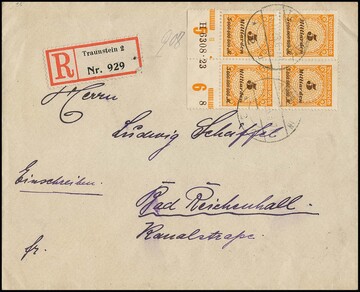 Traunstein 2
R
Nr. 929
908
H 6308·23
6 8
5 Milliarden
5 Milliarden
5 Milliarden
5 Milliarden
Herrn
Ludwig Schaffel
Einschreiben.
Bad Reichenhall
fr.
Kanalstraße.